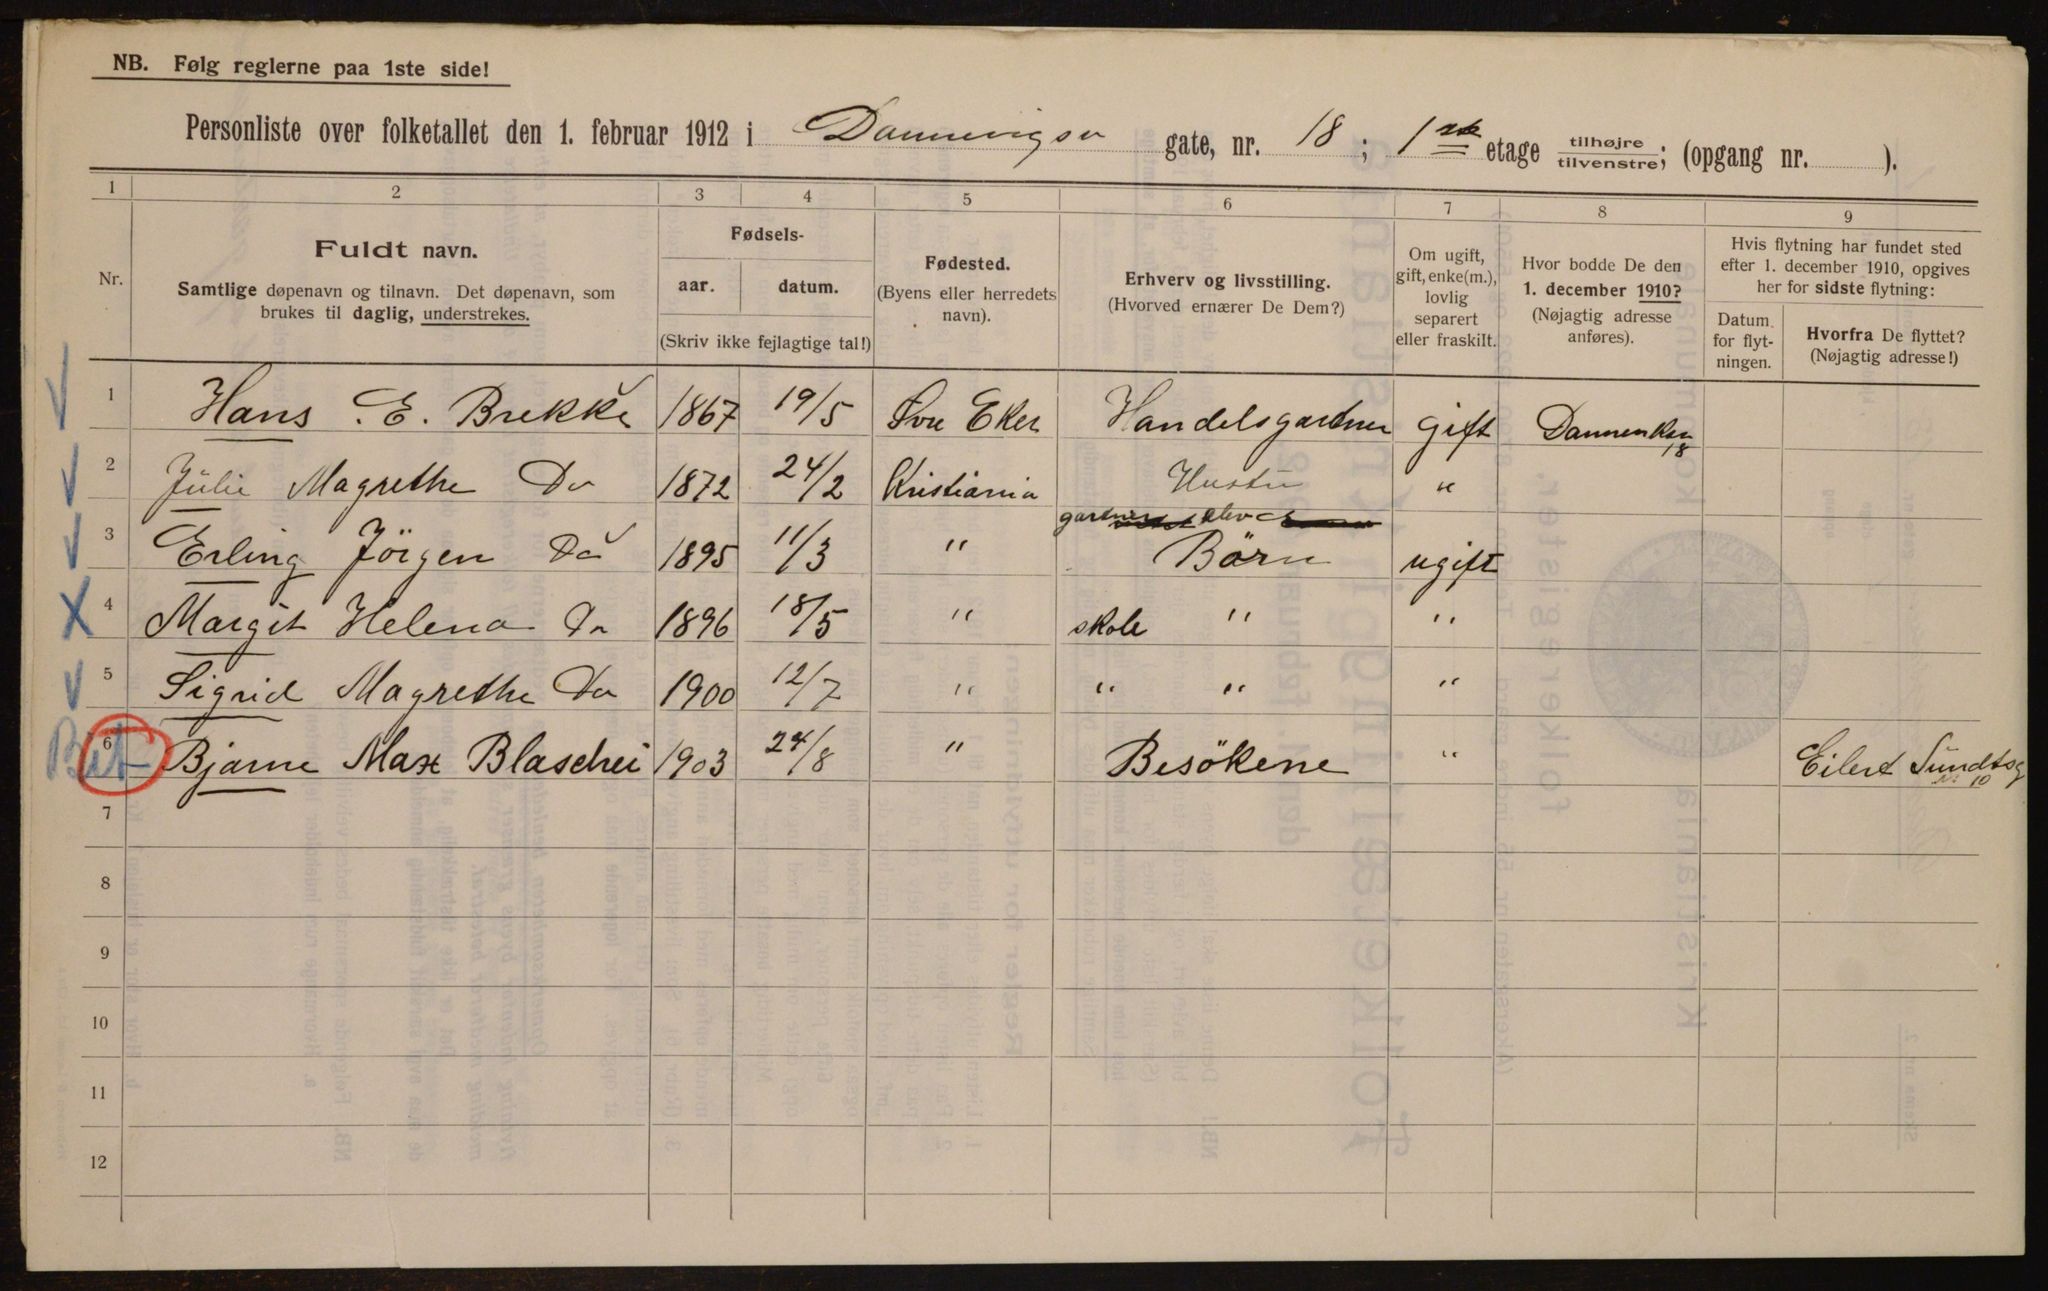 NB. Følg reglerne paa 1ste side!
Personliste over folketallet den 1. februar 1912 i Dannevigsv gate, nr. 18 ; 1ste etage tilhøjre/tilvenstre; (opgang nr. ).
1 2 3 4 5 6 7 8 9
Nr.
Fuldt navn.
Samtlige døpenavn og tilnavn. Det døpenavn, som
brukes til daglig, understrekes.
Fødsels-
aar. datum.
(Skriv ikke fejlagtige tal!)
Fødested.
(Byens eller herredets
navn).
Erhverv og livsstilling.
(Hvorved ernærer De Dem?)
Om ugift,
gift, enke(m.),
lovlig
separert
eller fraskilt.
Hvor bodde De den
1. december 1910?
(Nøjagtig adresse
anføres).
Hvis flytning har fundet sted
efter 1. december 1910, opgives
her for sidste flytning:
Datum
for flyt-
ningen.
Hvorfra De flyttet?
(Nøjagtig adresse!)
1 Hans E. Brekke 1867 19/5 Øvre Eker Handelsgartner gift 18
2 Julie Magrethe Do 1872 24/2 Kristiania Hustru "
gartner elev
3 Erling Jörgen Do 1895 11/3 " Börn ugift
4 Margit Helena Do 1896 18/5 " skole " "
5 Sigrid Magrethe Do 1900 12/7 " " " "
6 Bjarne Max Blaschei 1903 24/8 " Besökene " Eilert Sundtsg
10
7
8
9
10
11
12